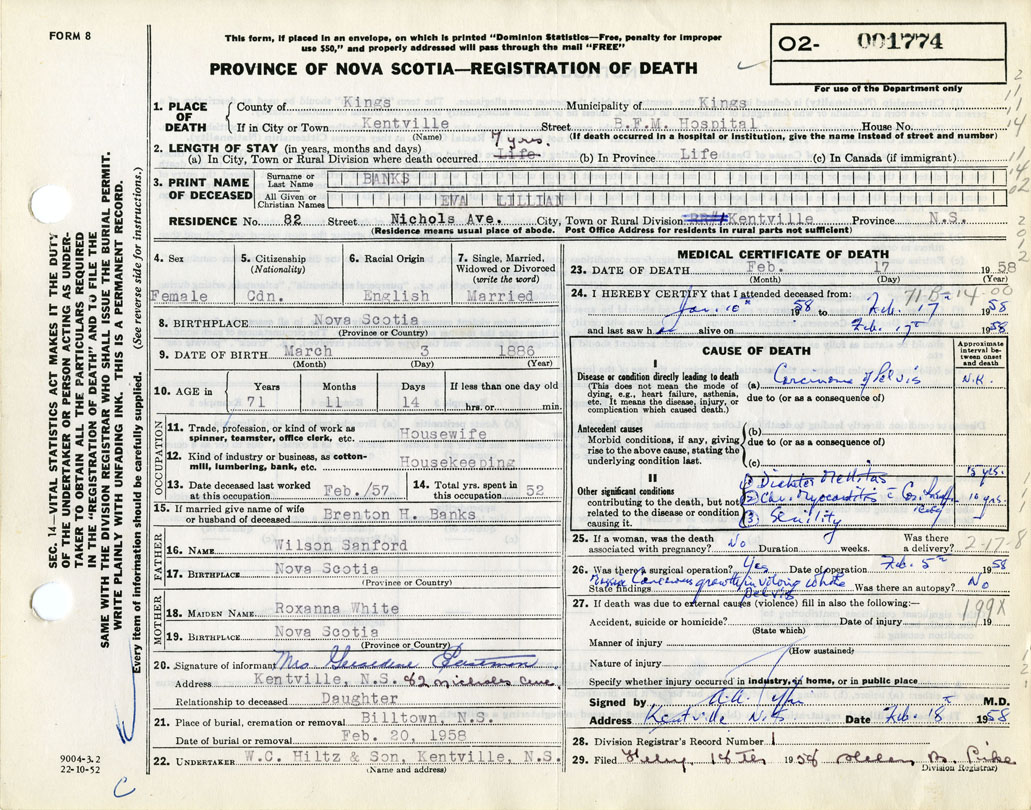 FORM 8
This form, if placed in an envelope, on which is printed "Dominion Statistics—Free, penalty for improper
use $50," and properly addressed will pass through the mail "FREE"
02- 001774
For use of the Department only
PROVINCE OF NOVA SCOTIA—REGISTRATION OF DEATH
SEC. 14—VITAL STATISTICS ACT MAKES IT THE DUTY
OF THE UNDERTAKER OR PERSON ACTING AS UNDER-
TAKER TO OBTAIN ALL THE PARTICULARS REQUIRED
IN THE "REGISTRATION OF DEATH" AND TO FILE THE
SAME WITH THE DIVISION REGISTRAR WHO SHALL ISSUE THE BURIAL PERMIT.
WRITE PLAINLY WITH UNFADING INK. THIS IS A PERMANENT RECORD.
Every item of information should be carefully supplied. (See reverse side for instructions.)
1. PLACE OF DEATH
County of Kings Municipality of Kings
If in City or Town Kentville Street B.F.M. Hospital House No.
(Name) (If death occurred in a hospital or institution, give the name instead of street and number)
2. LENGTH OF STAY (in years, months and days) 7 yrs.
(a) In City, Town or Rural Division where death occurred Life (b) In Province Life (c) In Canada (if immigrant)
3. PRINT NAME OF DECEASED
Surname or Last Name BANKS
All Given or Christian Names EVA LILLIAN
RESIDENCE No. 82 Street Nichols Ave. City, Town or Rural Division Kentville Province N.S.
(Residence means usual place of abode. Post Office Address for residents in rural parts not sufficient)
4. Sex Female
5. Citizenship (Nationality) Cdn.
6. Racial Origin English
7. Single, Married, Widowed or Divorced (write the word) Married
8. BIRTHPLACE Nova Scotia
(Province or Country)
9. DATE OF BIRTH March 3 1886
(Month) (Day) (Year)
10. AGE in Years Months Days If less than one day old
71 11 14 hrs. or min.
OCCUPATION
11. Trade, profession, or kind of work as spinner, teamster, office clerk, etc. Housewife
12. Kind of industry or business, as cotton-mill, lumbering, bank, etc. Housekeeping
13. Date deceased last worked at this occupation Feb./57 14. Total yrs. spent in this occupation 52
15. If married give name of wife or husband of deceased Brenton H. Banks
FATHER
16. NAME Wilson Sanford
17. BIRTHPLACE Nova Scotia
(Province or Country)
MOTHER
18. MAIDEN NAME Roxanna White
19. BIRTHPLACE Nova Scotia
(Province or Country)
20. Signature of informant Mrs Geraldine Eastman
Address Kentville, N.S. 82 Nicholes Ave.
Relationship to deceased Daughter
21. Place of burial, cremation or removal Billtown, N.S.
Date of burial or removal Feb. 20, 1958
22. UNDERTAKER W.C. Hiltz & Son, Kentville, N.S.
(Name and address)
9004-3.2
22-10-52
C
MEDICAL CERTIFICATE OF DEATH
23. DATE OF DEATH Feb. 17 1958
(Month) (Day) (Year)
71 B-14-00
24. I HEREBY CERTIFY that I attended deceased from:
Jan. 10th 1958 to Feb. 17th 1958
and last saw her alive on Feb. 17th 1958
CAUSE OF DEATH
Approximate interval between onset and death
I
Disease or condition directly leading to death (a) Carcinoma of Pelvis N.K.
(This does not mean the mode of dying, e.g., heart failure, asthenia, etc. It means the disease, injury, or complication which caused death.)
due to (or as a consequence of)
Antecedent causes (b)
Morbid conditions, if any, giving rise to the above cause, stating the underlying condition last.
due to (or as a consequence of)
(c)
II
Other significant conditions contributing to the death, but not related to the disease or condition causing it.
(1) Diabetes Mellitus 15 yrs.
(2) Chr. Myocarditis 10 yrs.
(3) Senility
25. If a woman, was the death associated with pregnancy? No Duration weeks. Was there a delivery?
2-17-8
26. Was there a surgical operation? Yes Date of operation Feb. 5th 1958
State findings Cancerous growth involving whole pelvis Was there an autopsy? No
27. If death was due to external causes (violence) fill in also the following:—
199X
Accident, suicide or homicide? Date of injury 19
(State which)
Manner of injury
(How sustained)
Nature of injury
Specify whether injury occurred in industry, in home, or in public place
Signed by M.D.
Address Kentville N.S. Date Feb. 18 1958
28. Division Registrar's Record Number 1
29. Filed Feby, 18th 1958 Helen B. Pike
(Division Registrar)